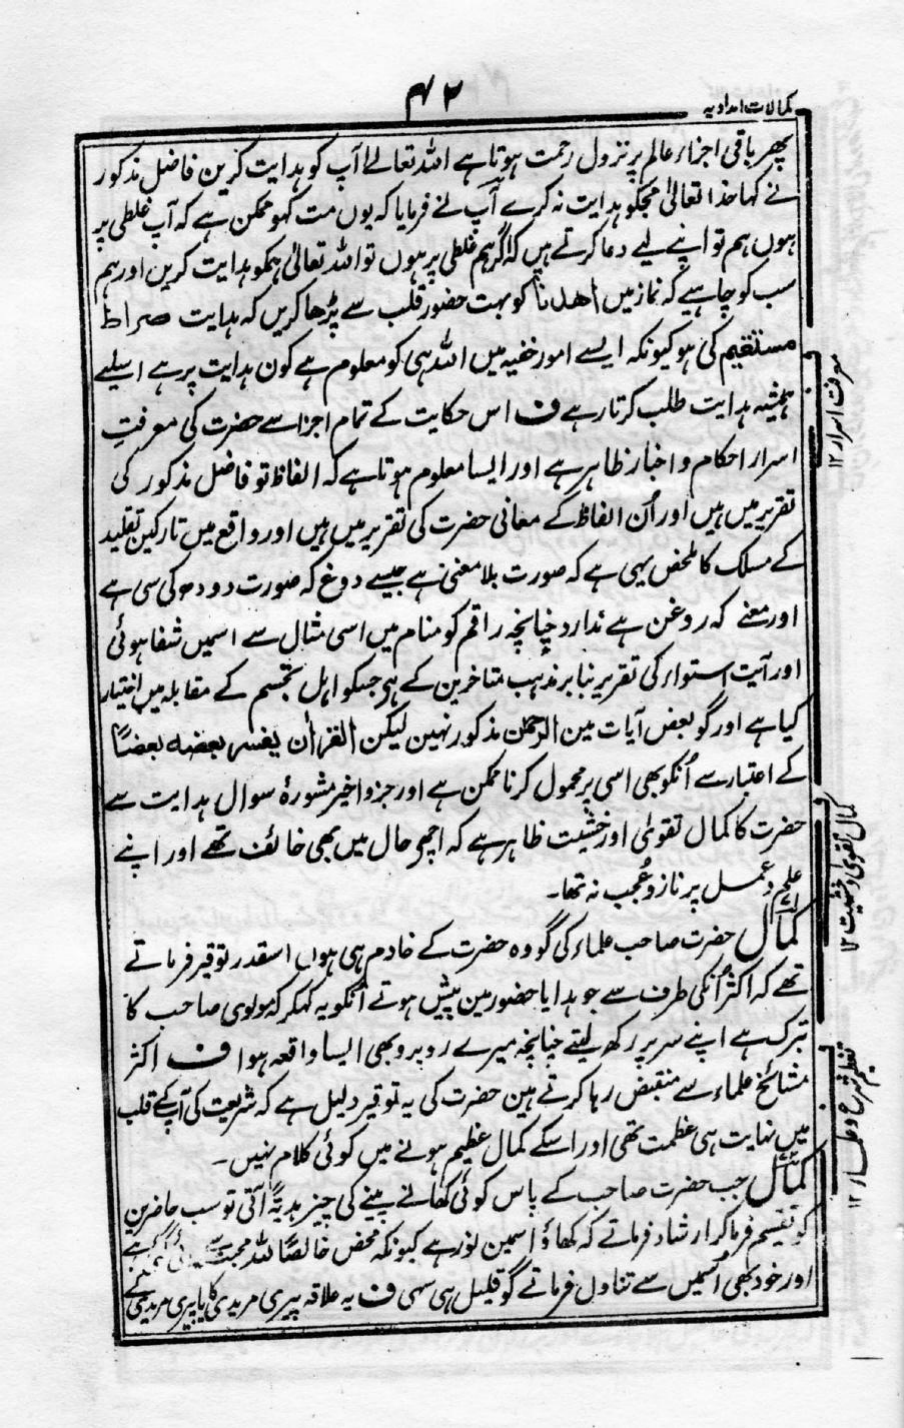 کمالات امدادیہ
۴۲
پھر باقی اجزاء عالم پر نزول رحمت ہوتا ہے اللہ تعالےٰ آپ کو ہدایت کرین فاضل مذکور
نے کہا خدا تعالیٰ مجکو ہدایت نہ کرے آپ نے فرمایا کہ یوں مت کہو ممکن ہے کہ آپ غلطی پر
ہوں ہم تو اپنے لیے دعا کرتے ہیں کہ اگر ہم غلطی پر ہوں تو اللہ تعالیٰ ہمکو ہدایت کریں اور ہم
سب کو چاہیے کہ نماز میں اھدنا کو بہت حضور قلب سے پڑھا کریں کہ ہدایت صراط
مستقیم کی ہو کیونکہ ایسے امور خفیہ میں اللہ ہی کو معلوم ہے کون ہدایت پر ہے اسلیے
ہمیشہ ہدایت طلب کرتا رہے ف اس حکایت کے تمام اجزا سے حضرت کی معرفتِ
معرفت اسرار ۱۲
اسرار احکام و اخبار ظاہر ہے اور ایسا معلوم ہوتا ہے کہ الفاظ تو فاضل مذکور کی
تقریر میں ہیں اور اُن الفاظ کے معانی حضرت کی تقریر میں ہیں اور واقع میں تارکین تقلید
کے مسلک کا ملخص یہی ہے کہ صورت بلا معنی ہے جیسے دوغ کہ صورت دودھ کی سی ہے
اور معنے کہ روغن ہے ندارد چنانچہ راقم کو منام میں اسی مثال سے اسمیں شفا ہوئی
اور آیت استواء کی تقریر بنا بر مذہب متاخرین کے ہے جسکو اہل تجسم کے مقابلہ میں اختیار
کیا ہے اور گو بعض آیات مین الرحمٰن مذکور نہین لیکن القراٰن یفسر بعضہ بعضًا
کے اعتبار سے اُنکو بھی اسی پر محمول کرنا ممکن ہے اور جزو اخیر مشورۂ سوال ہدایت سے
حضرت کا کمال تقویٰ اور خشیت ظاہر ہے کہ اچھی حال میں بھی خائف تھے اور اپنے
کمال تقویٰ و خشیت ۱۲
علم و عمل پر ناز و عُجب نہ تھا۔
کمال حضرت صاحب علماء کی گو وہ حضرت کے خادم ہی ہوں اسقدر توقیر فرماتے
تھے کہ اکثر اُنکی طرف سے جو ہدایا حضور مین پیش ہوتے اُنکو یہ کہکر کہ مولوی صاحب کا
تبرک ہے اپنے سر پر رکھ لیتے چنانچہ میرے روبرو بھی ایسا واقعہ ہوا ف اکثر
مشائخ علماء سے منقبض رہا کرتے ہین حضرت کی یہ توقیر دلیل ہے کہ شریعت کی آپکے قلب
میں نہایت ہی عظمت تھی اور اسکے کمال عظیم ہونے میں کوئی کلام نہیں۔
کمال جب حضرت صاحب کے پاس کوئی کھانے پینے کی چیز ہدیۃً آتی تو سب حاضرین
کو تقسیم فرما کر ارشاد فرماتے کہ کھاؤ اسمین نور ہے کیونکہ محض خالصًا للہ محبت سے
اور خود بھی اُسمیں سے تناول فرماتے گو قلیل ہی سہی ف یہ علاقہ پیری مریدی کا یا پیری مریدی کے